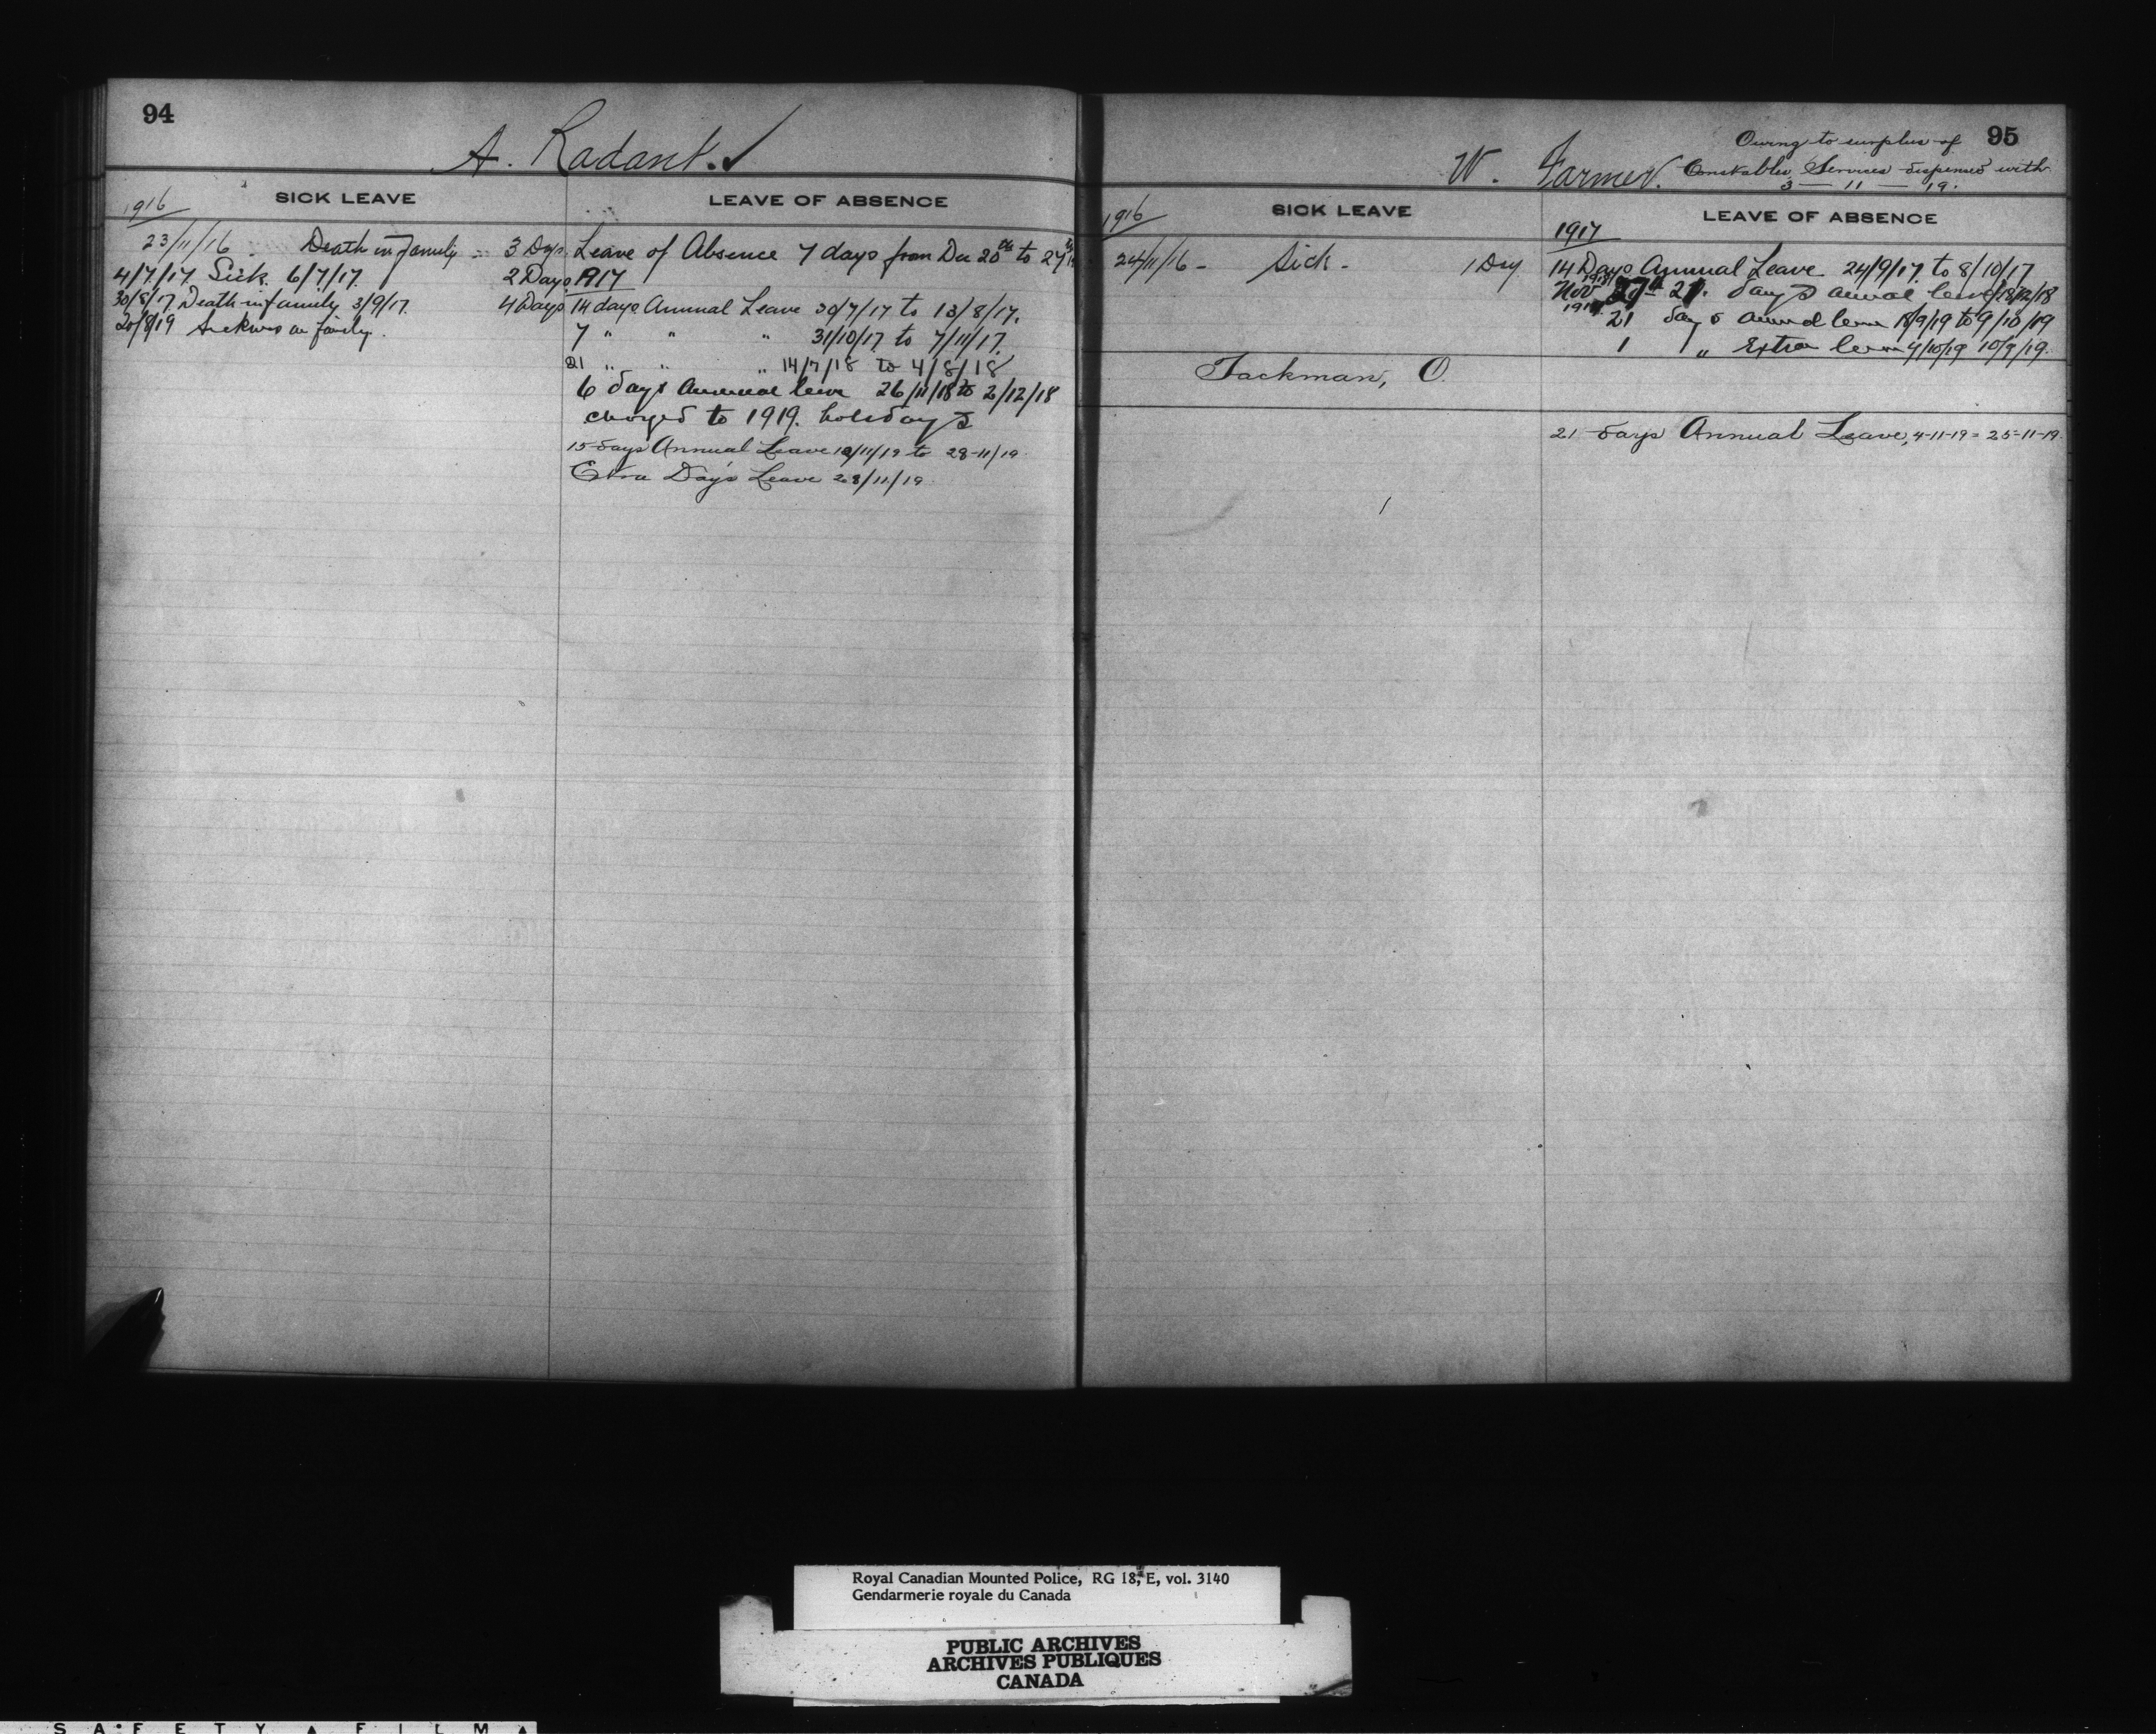 94
A. Radant. ✓
SICK LEAVE
LEAVE OF ABSENCE
1916
23/11/16 Death in family - 3 Days
4/7/17 Sick. 6/7/17. 2 Days
30/8/17 Death in family 3/9/17. 4 Days
20/8/19 Sickness in family.
Leave of Absence 7 days from Dec 20th to 27th
1917
14 days Annual Leave 30/7/17 to 13/8/17.
7 " " " 31/10/17 to 7/11/17
21 " " " 14/7/18 to 4/8/18
6 days Annual leave 26/11/18 to 2/12/18
charged to 1919. holidays
15 days Annual Leave /11/19 to 28-11/19
Extra Day's Leave 28/11/19
95
Owing to surplus of
Constables, Services dispensed with
3 — 11 — 19.
W. Farmer.
SICK LEAVE
LEAVE OF ABSENCE
1916
24/11/16 - Sick - 1 Day
1917
14 Days Annual Leave 24/9/17 to 8/10/17
Nov 27th 21. days annual leave 18/12/18
21 days annual leave 18/9/19 to 9/10/19
1 " Extra leave 9/10/19 10/9/19.
Tackman, O.
21 days Annual Leave, 4-11-19 = 25-11-19
Royal Canadian Mounted Police, RG 18, E, vol. 3140
Gendarmerie royale du Canada
PUBLIC ARCHIVES
ARCHIVES PUBLIQUES
CANADA
SAFETY ▲ FILM ▲